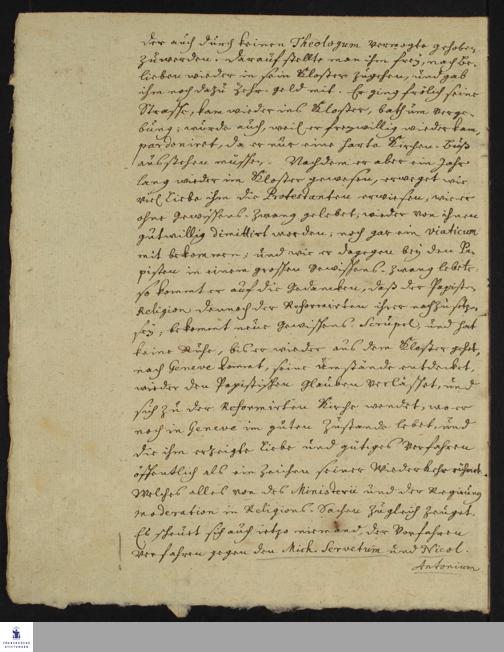 der auch durch keinen Theologum vermogte gehoben
zu werden. Darauf stellte man ihm frey, nach be-
lieben wieder in sein Kloster zu gehen, und gab
ihm noch dazu Zehr-geld mit. Er ging frölich seine
Strasse, kam wieder ins Kloster, bath um verge-
bung; wurde auch, weil er freywillig wieder kam,
pardoniret, da er nur eine harte Kirchen-Buß
ausstehen müssen. Nachdem er aber ein Jahr
lang wieder im Kloster gewesen, erweget wie
viel Liebe ihm die Protestanten erwiesen, wie er
ohne Gewissens-Zwang gelebet, wieder von ihnen
gutwillig dimittirt worden, noch gar ein viaticum
mit bekommen; und wie er dagegen bey den Pa-
pisten in einem grossen Gewissens-Zwang lebete:
so kommt er auf die Gedancken, daß der Papisten
Religion dennoch der Reformirten ihrer nachzusetzen
sey; bekommt neue Gewissens Scrupel, und hat
keine Ruhe, bis er wieder aus dem Kloster gehet,
nach Geneve kommt, seine Umstände entdecket,
wieder den Papistischen Glauben verlässet, und
sich zu der Reformirten Kirche wendet, wo er
noch in Geneve im guten Zustande lebet, und
die ihm erzeigte Liebe und gütiges Verfahren
öffentlich als ein Zeichen seiner Wiederkehr rühmet.
Welches alles von des Ministerii und der Regirung
moderation in Religions-Sachen zugleich zeuget.
Es scheuet sich auch ietzo niemand, der Vorfahren
Verfahren gegen den Mich. Servetum und Nicol.
Antonium
FRANCKESCHE
STIFTUNGEN